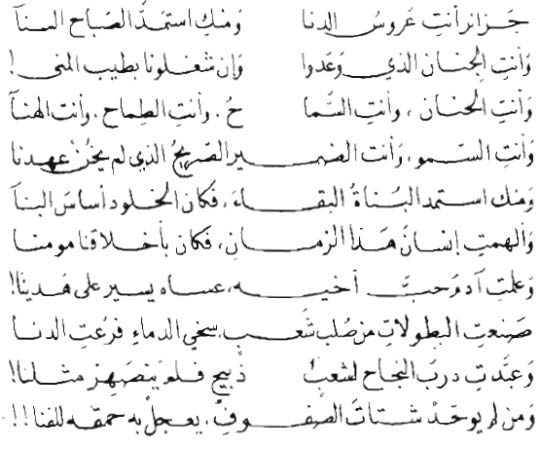 جَزائر أنتِ عَروسُ الدنا وَمنكِ استمَدَّ الصَباح السنآ
وَأنتِ الجنَان الذي وَعَدوا وَإن شغَلونا بطيب المنى!
وَأنتِ الحنان، وأنتِ السَّما حُ. وأنتِ الطِماح. وأنت الهنآ
وَأنتِ السّمو، وَأنت الضمير الصَريحُ الذي لم يخُنْ عهدنا
وَمنك استمد البُناةُ البقاءَ، فكان الخلود أساسَ البنآ
وَألهمتِ إنسانَ هَذا الزمانِ، فكان بأخلاقنا مومنا
وَعلمتِ آدمَ حبَّ أخيه، عساه يسير على هَدينا!
صَنعتِ البطولاتِ من صُلب شَعب، سخي الدماءِ فرُعتِ الدنا
وَعبَّدتِ دربَ النجاح لشعبٍ ذبيح فلم يَنصَهِر مثلنا!
وَمن لم يوحّد شتاتَ الصفوفِ، يعجلْ به حمقه للفنا!!